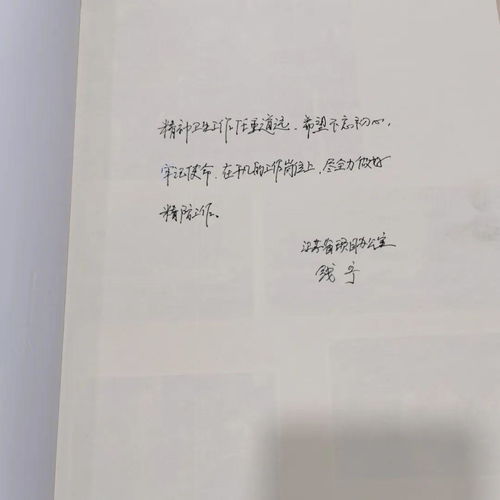 精神卫生工作任重道远，希望不忘初心，
牢记使命，在平凡的工作岗位上，尽全力做好
精防工作。
江苏省项目办公室
钱宁